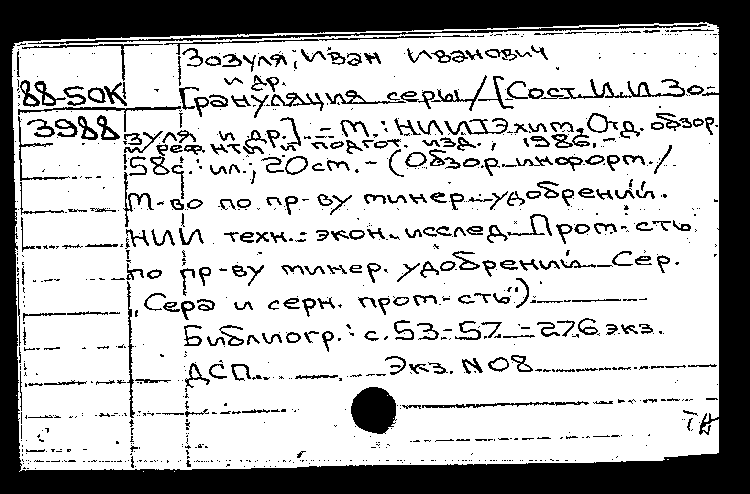 Зозуля, Иван Иванович
и др.
88-50К Грануляция серы / [Сост. И.И. Зо-
3988 зуля и др.]. - М.: НИИТЭхим, Отд. обзор.
и реф. нты и подгот. изд., 1986. -
58с.: ил.; 20 ст. - (Обзор. информ. /
М-во по пр-ву минер. удобрений.
НИИ техн.-экон. исслед. Пром-сть
по пр-ву минер. удобрений. Сер.
„Сера и серн. пром-сть")
Библиогр.: с. 53-57 - 276 экз.
ДСП. Экз. N 08